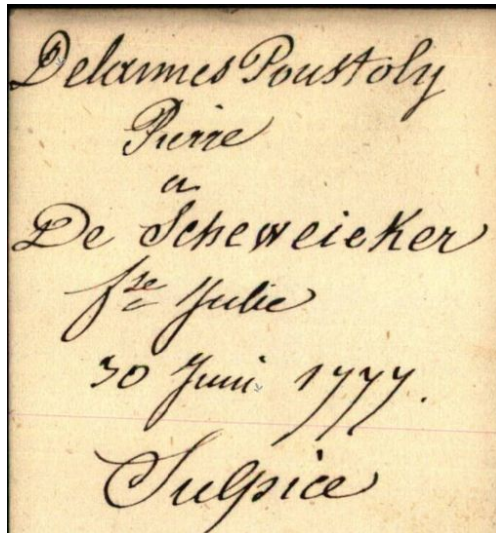 Delannes Poustoly
Pierre
a
De Scheweieker
fse Julie
30 Juni 1777.
Sulpice